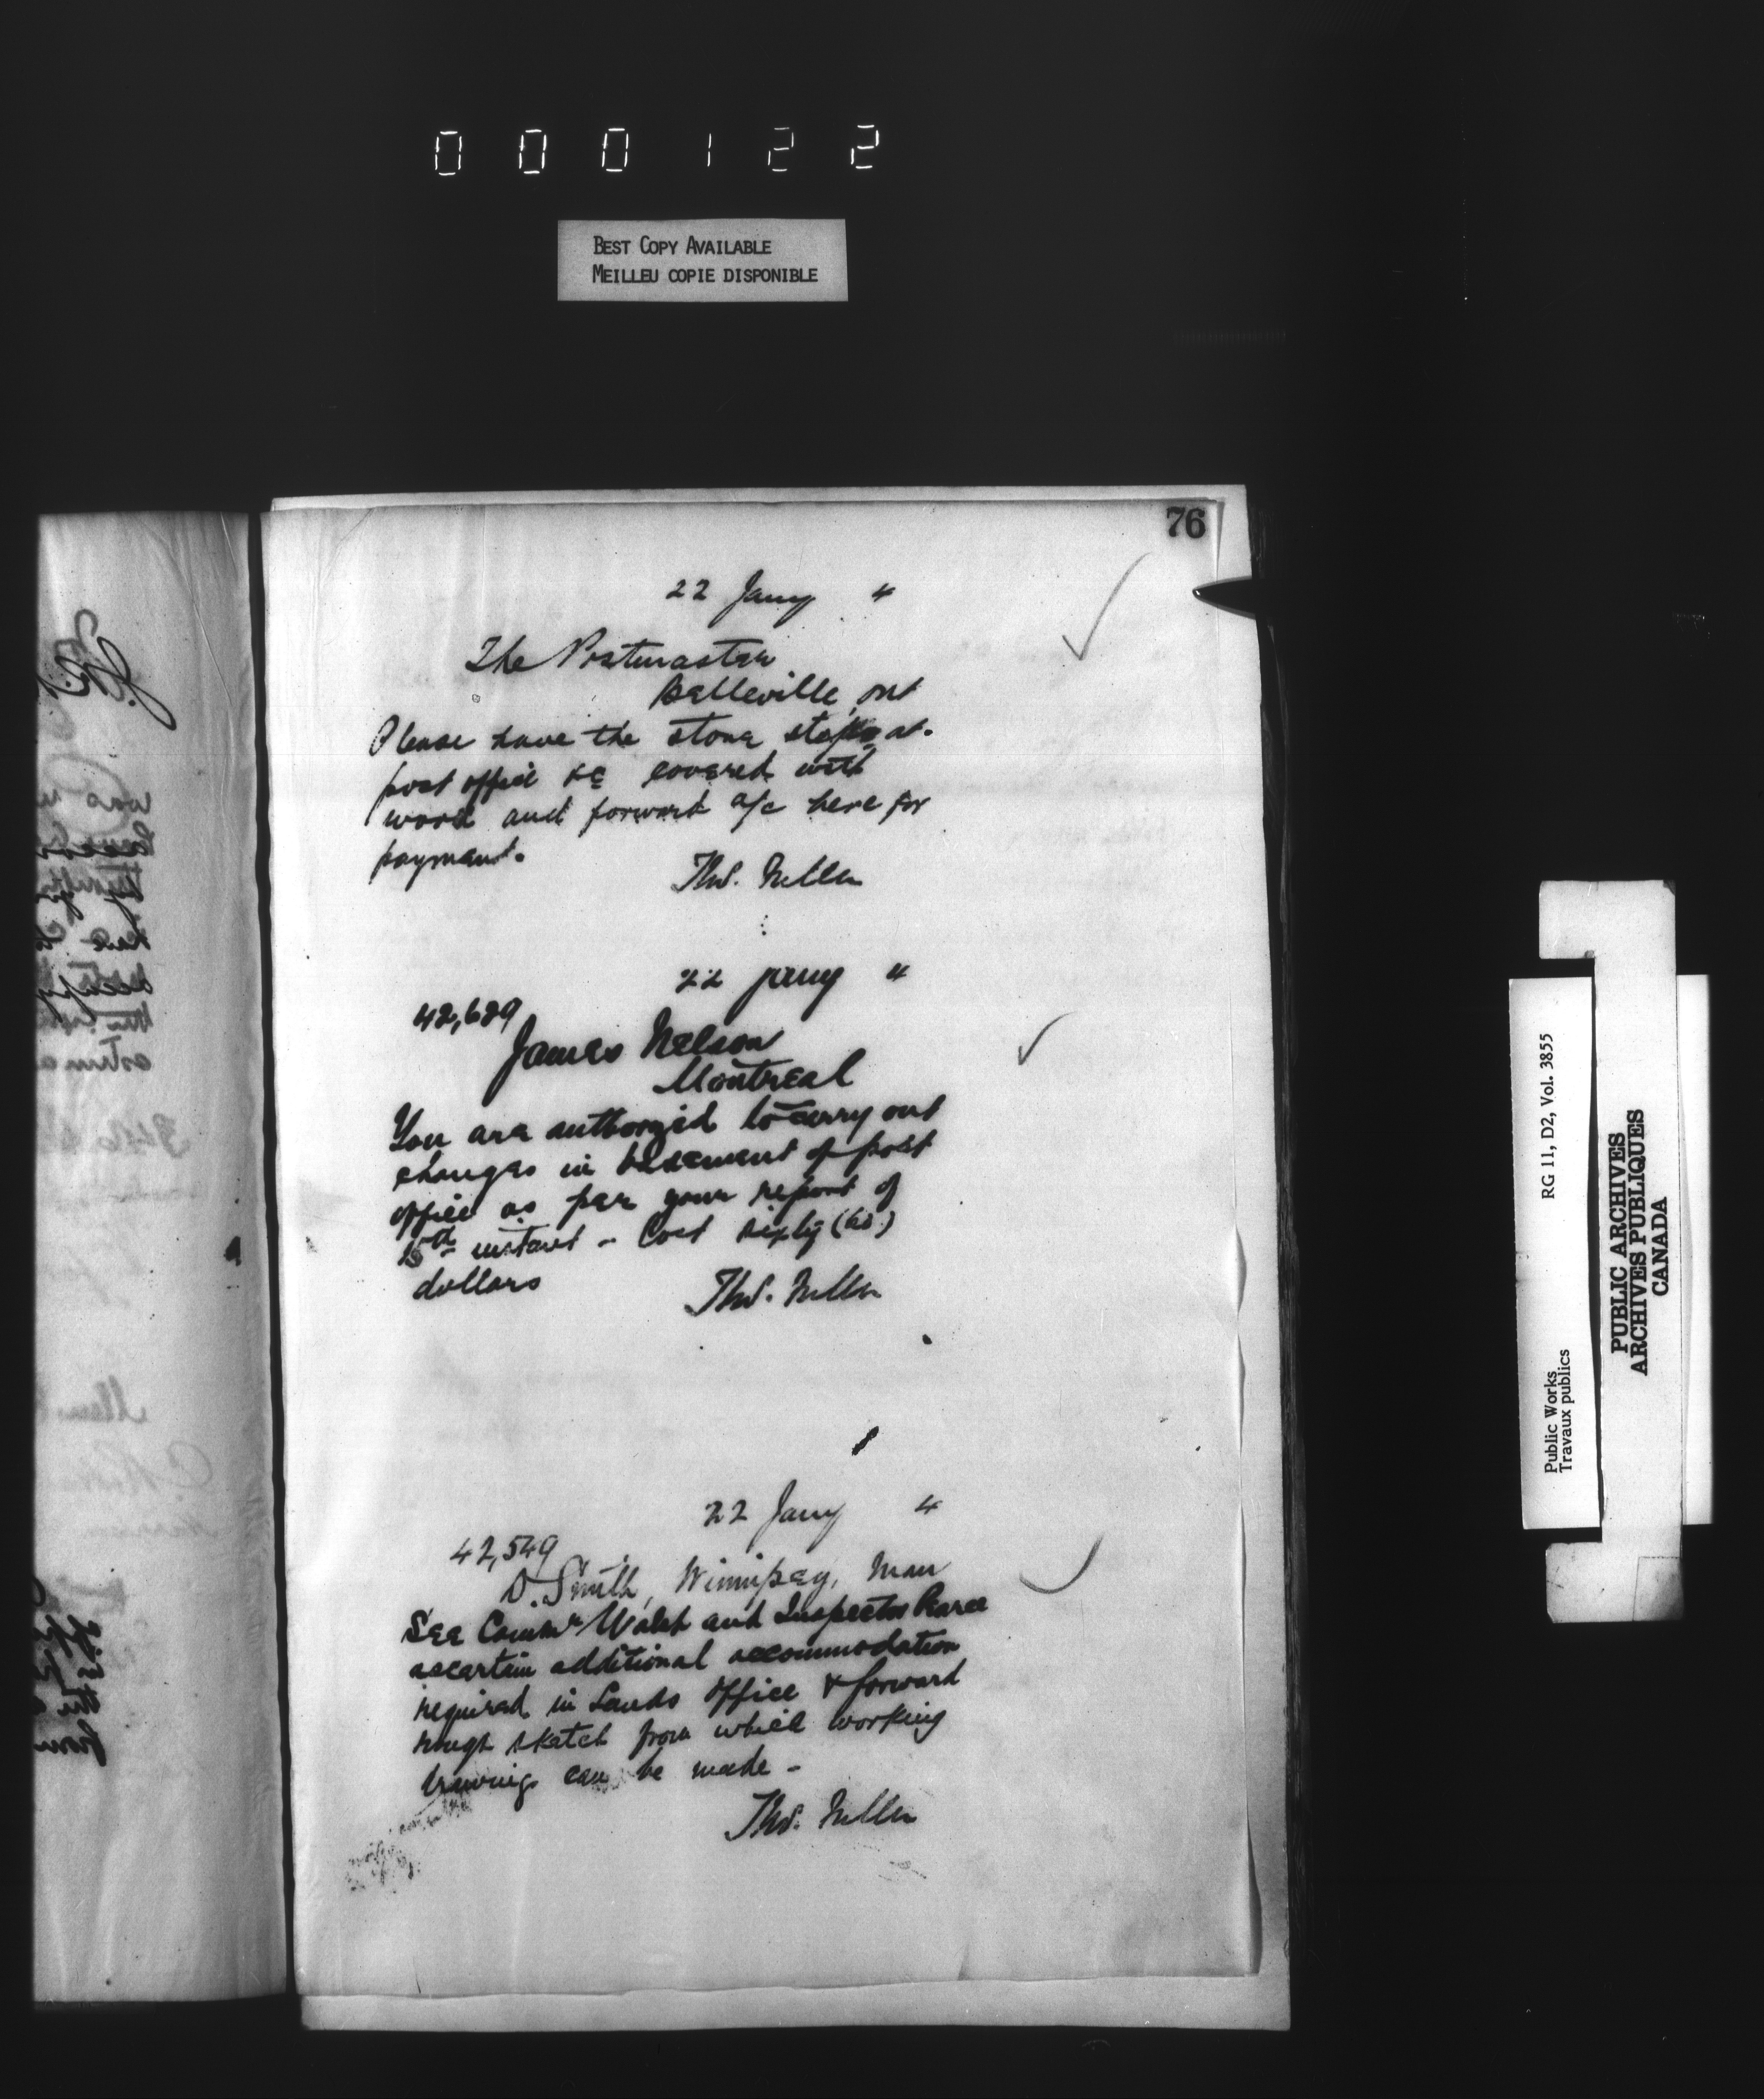 000122
BEST COPY AVAILABLE
MEILLEU COPIE DISPONIBLE
76
22 Jany 4
The Postmaster
Belleville, Ont
Please have the stone steps at
post office be covered with
wood and forward a/c here for
payment.
Thos. Fuller
22 Jany 4
42,689
James Nelson
Montreal
You are authorized to carry out
changes in basement of post
office as per your report of
15th instant - Cost sixty (60)
dollars
Thos. Fuller
22 Jany 4
42,549
D. Smith, Winnipeg, Man
See Commr Walsh and Inspector Pearce
ascertain additional accommodation
required in Lands office & forward
rough sketch from which working
drawings can be made -
Thos. Fuller
RG 11, D2, Vol. 3855
Public Works
Travaux publics
PUBLIC ARCHIVES
ARCHIVES PUBLIQUES
CANADA